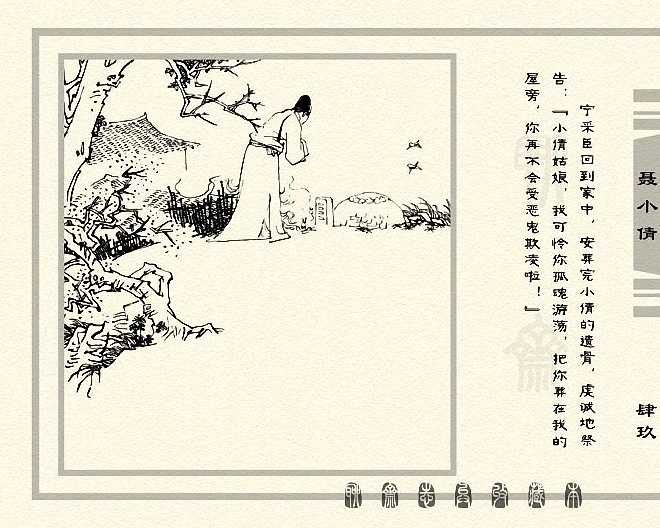 聂小倩
肆玖
宁采臣回到家中，安葬完小倩的遗骨，虔诚地祭
告：『小倩姑娘，我可怜你孤魂游荡，把你葬在我的
屋旁，你再不会受恶鬼欺凌啦！』